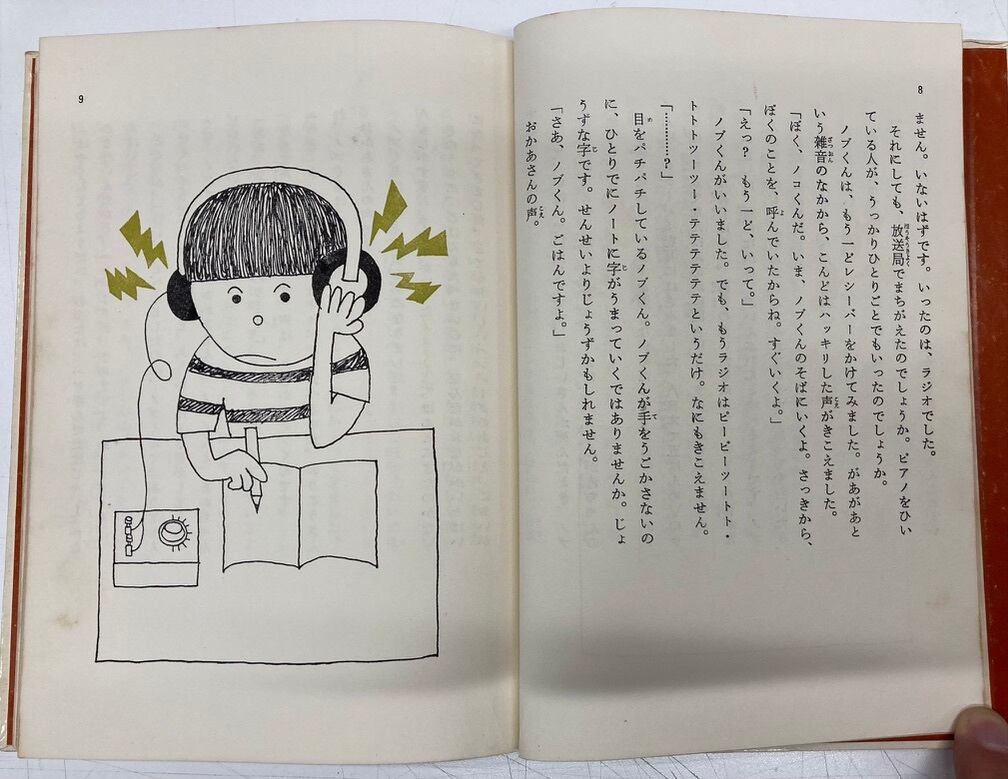 8
ません。いないはずです。いったのは、ラジオでした。
それにしても、放送局でまちがえたのでしょうか。ピアノをひい
ている人が、うっかりひとりごとでもいったのでしょうか。
ノブくんは、もう一どレシーバーをかけてみました。があがあと
いう雑音のなかから、こんどはハッキリした声がきこえました。
「ぼく、ノコくんだ。いま、ノブくんのそばにいくよ。さっきから、
ぼくのことを、呼んでいたからね。すぐいくよ。」
「えっ？　もう一ど、いって。」
ノブくんがいいました。でも、もうラジオはピーピーツートト・
トトトツーツー・テテテテテというだけ。なにもきこえません。
「…………？」
目をパチパチしているノブくん。ノブくんが手をうごかさないの
に、ひとりでにノートに字がうまっていくではありませんか。じょ
うずな字です。せんせいよりじょうずかもしれません。
「さあ、ノブくん。ごはんですよ。」
おかあさんの声。
9